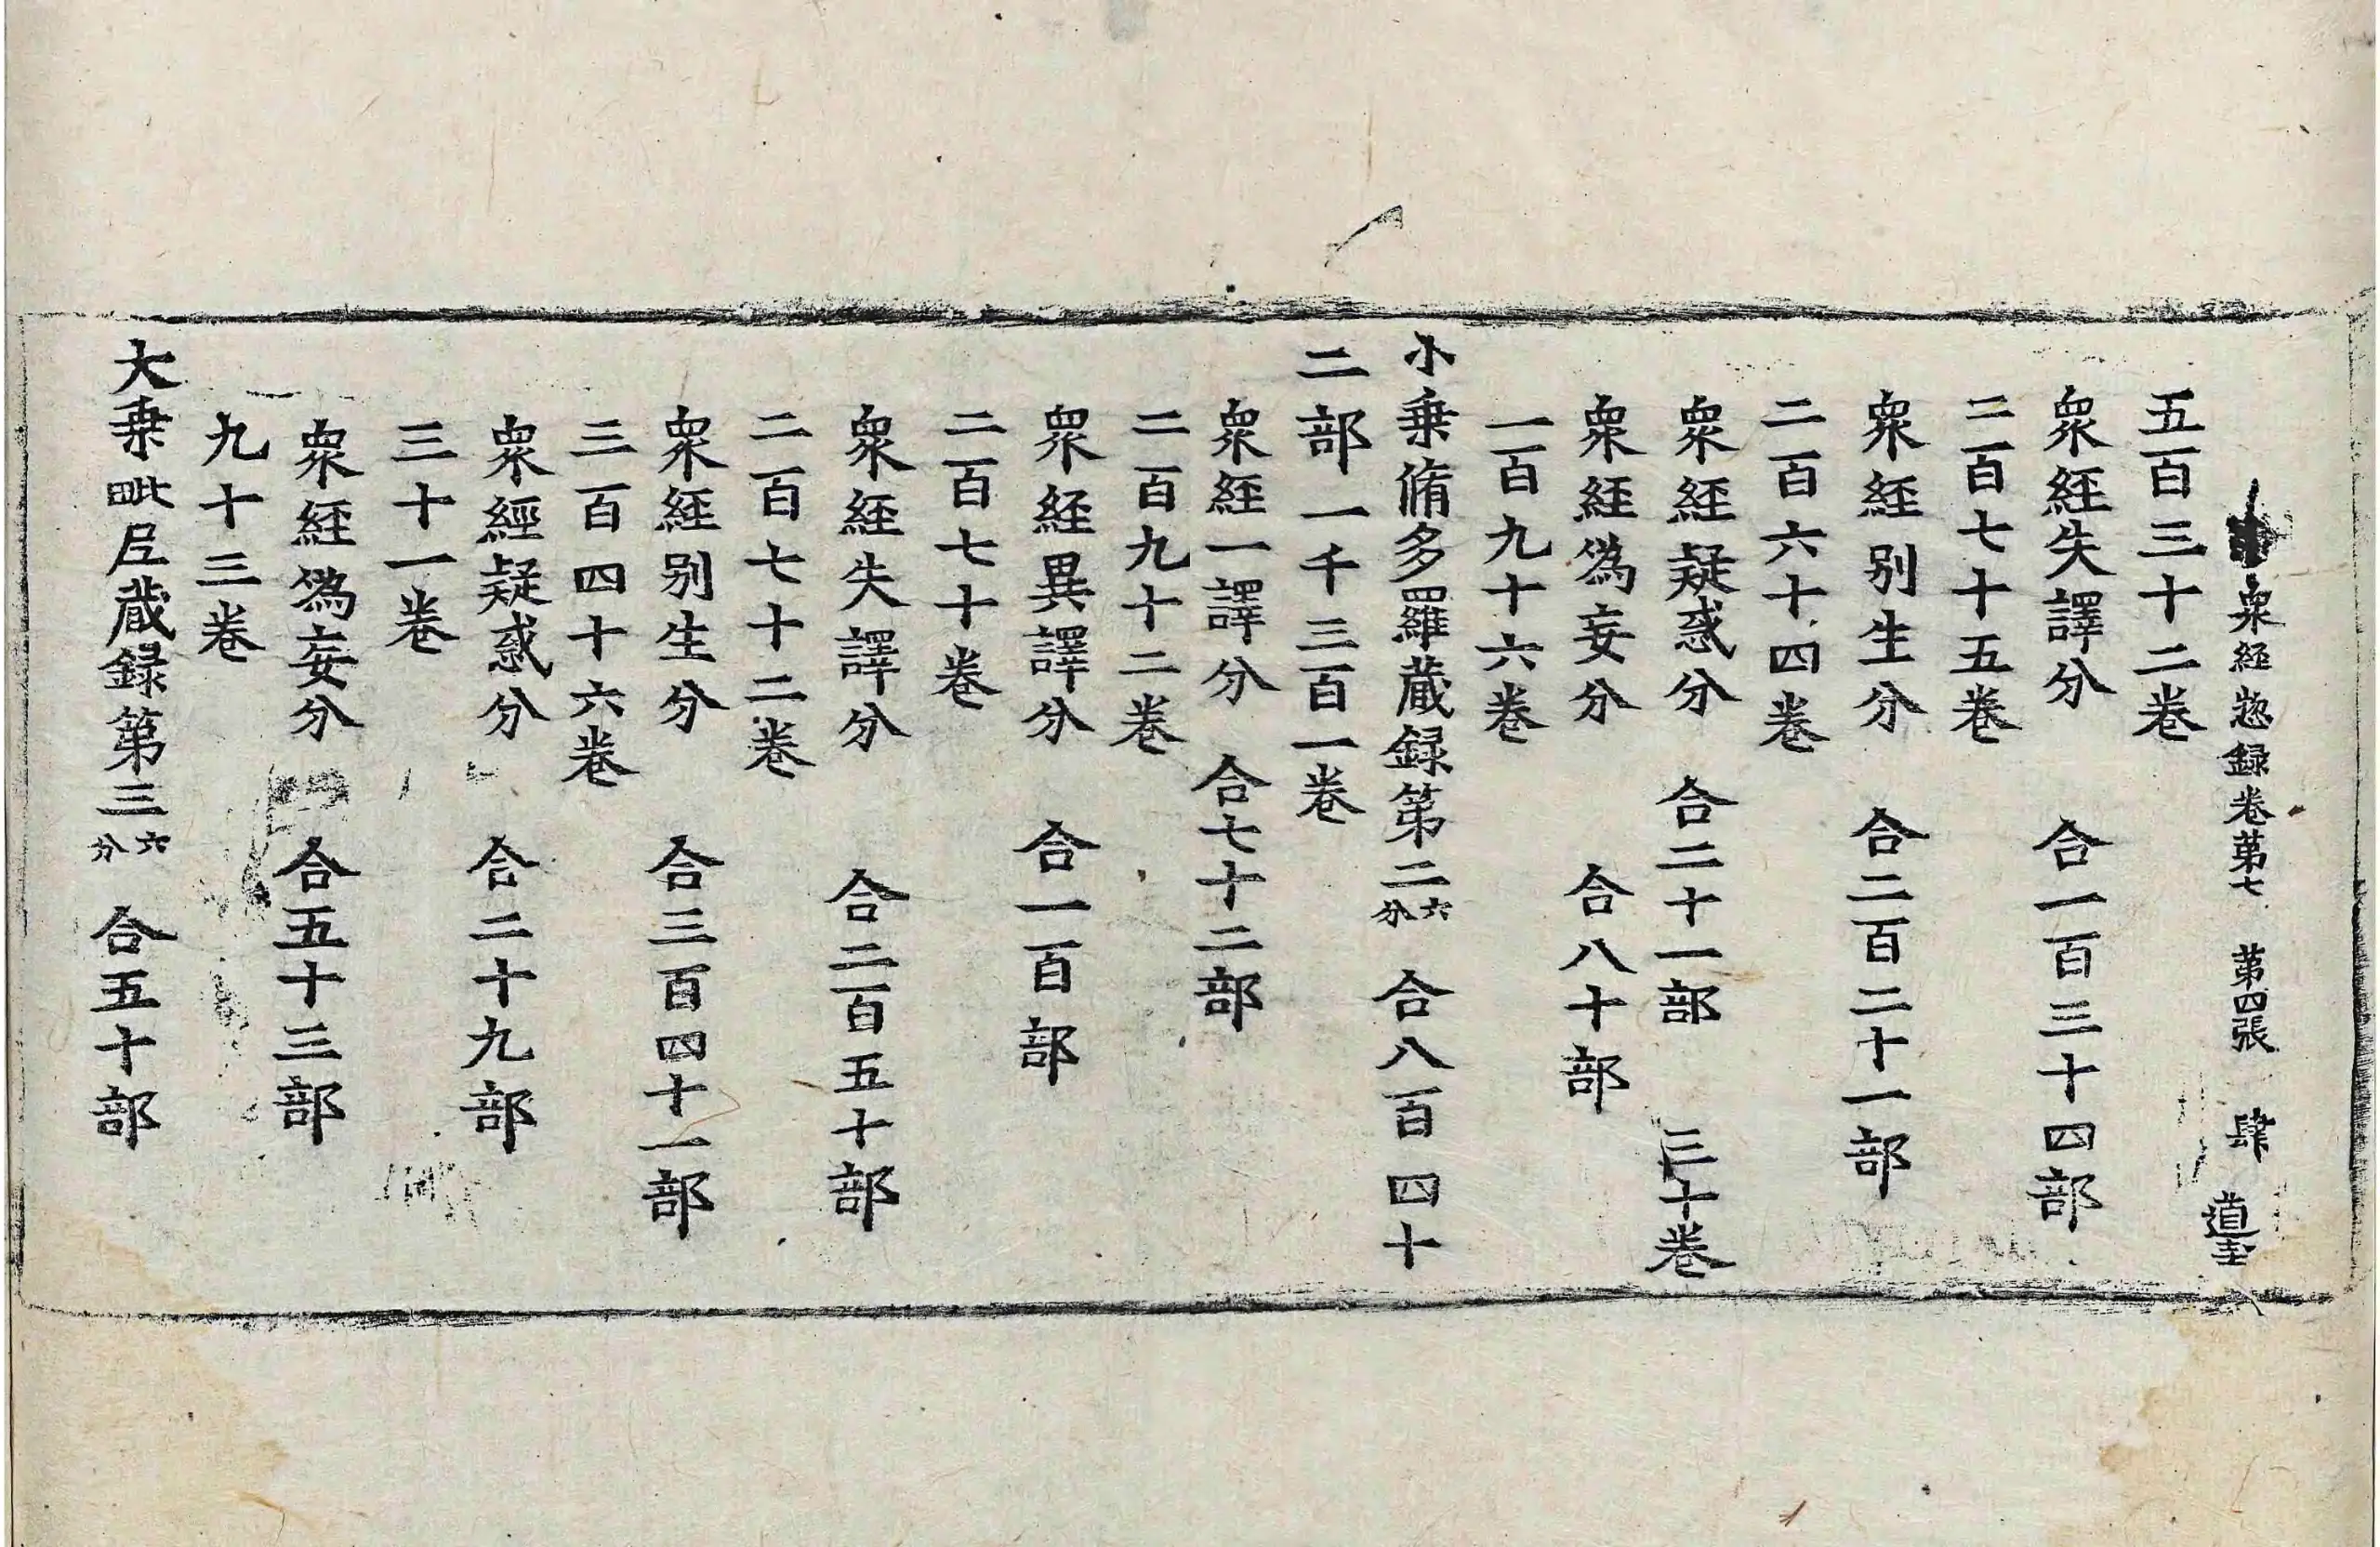 衆經惣録卷第七 第四張 肆 道
五百三十二卷
衆經失譯分 合一百三十四部
二百七十五卷
衆經别生分 合二百二十一部
二百六十四卷
衆經疑惑分 合二十一部 三十卷
衆經僞妄分 合八十部
一百九十六卷
小乗脩多羅蔵録第二六分 合八百四十
二部一千三百一卷
衆經一譯分 合七十二部
二百九十二卷
衆經異譯分 合一百部
二百七十卷
衆經失譯分 合二百五十部
二百七十二卷
衆經别生分 合三百四十一部
三百四十六卷
衆經疑惑分 合二十九部
三十一卷
衆經僞妄分 合五十三部
九十三卷
大乗毗尼蔵録第三六分 合五十部